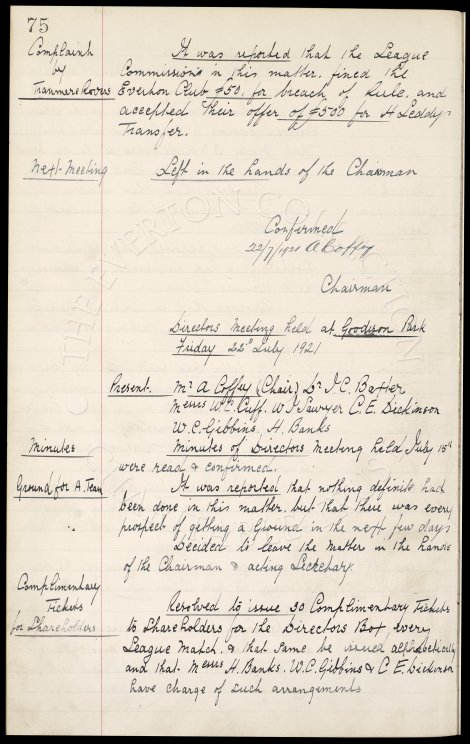 75
Complaint
by
Tranmere Rovers
It was reported that the League
Commissions in this matter, fined the
Everton Club £50, for breach of Rule, and
accepted their offer of £500 for H Leddys
Transfer.
Next Meeting
Left in the hands of the Chairman
Confirmed
22/7/1921 A Coffey
Chairman
Directors Meeting held at Goodison Park
Friday 22nd July 1921
Present. Mr A Coffey (Chair) Dr J.C. Baxter
Messrs W.C. Cuff. W J Sawyer C.E. Dickinson
W.C. Gibbins. H. Banks
Minutes
Minutes of Directors Meeting held July 15th
were read & confirmed.
Ground for A. Team
It was reported that nothing definite had
been done in this matter, but that there was every
prospect of getting a Ground in the next few days
Decided to leave the Matter in the hands
of the Chairman & acting Secretary.
Complimentary
Tickets
for Shareholders
Resolved to issue 30 Complimentary Tickets
to Shareholders for the Directors Box, every
League Match, & that same be issued alphabetically
and that Messrs H. Banks. W.C. Gibbins & C E. Dickinson
have charge of such arrangements
THE EVERTON COLLECTION